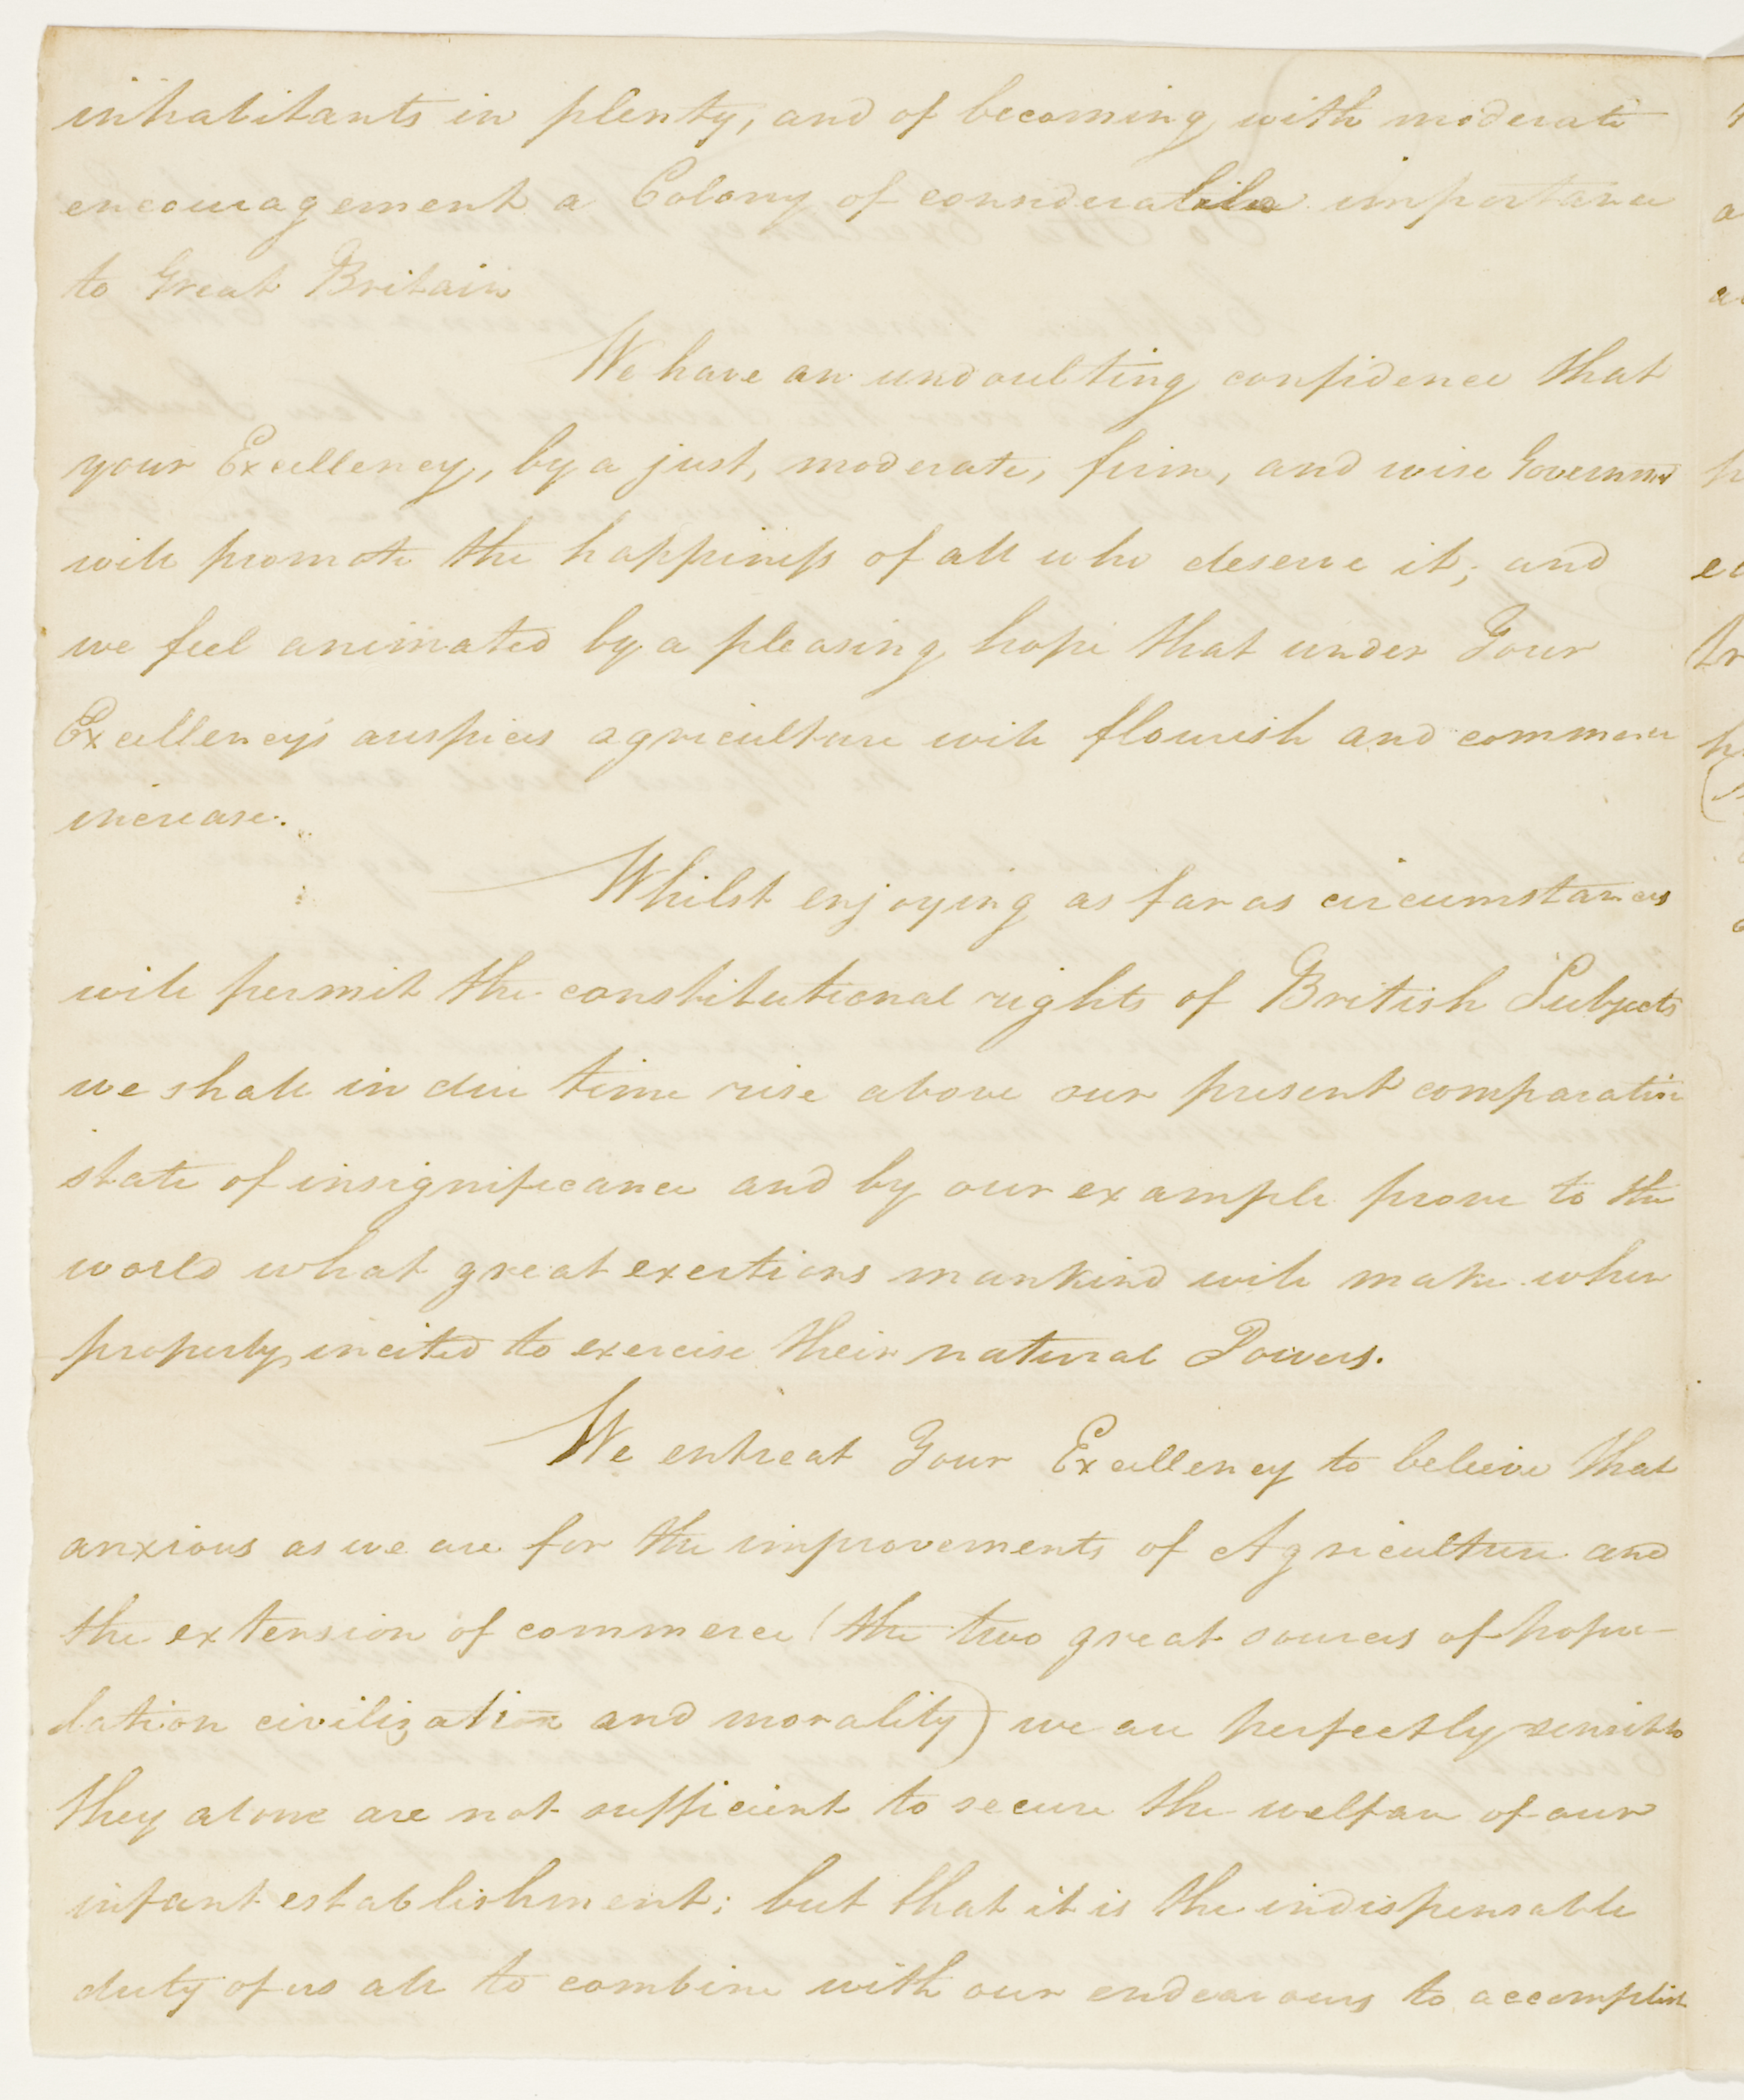 inhabitants in plenty, and of becoming with moderate
encouragement a Colony of considerable importance
to Great Britain
We have an undoubting confidence that
your Excellency, by a just, moderate, firm, and wise Government
will promote the happiness of all who deserve it; and
we feel animated by a pleasing hope that under Your
Excellency's auspices agriculture will flourish and commerce
increase.
Whilst enjoying as far as circumstances
will permit the constitutional rights of British Subjects
we shall in due time rise above our present comparative
state of insignificance and by our example prove to the
world what great exertions mankind will make when
properly incited to exercise their natural Powers.
We entreat Your Excellency to believe that
anxious as we are for the improvements of Agriculture and
the extension of commerce (the two great sources of popu-
lation civilization and morality) we are perfectly sensible
they alone are not sufficient to secure the welfare of our
infant establishment; but that it is the indispensable
duty of us all to combine with our endeavours to accomplish